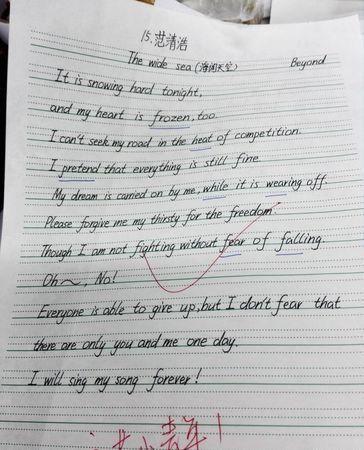 15.范清浩
The wide sea (海阔天空) Beyond
It is snowing hard tonight,
and my heart is frozen, too.
I can't seek my road in the heat of competition.
I pretend that everything is still fine.
My dream is carried on by me, while it is wearing off.
Please forgive me my thirsty for the freedom.
Though I am not fighting without fear of falling.
Oh~, No!
Everyone is able to give up, but I don't fear that
there are only you and me one day.
I will sing my song forever!